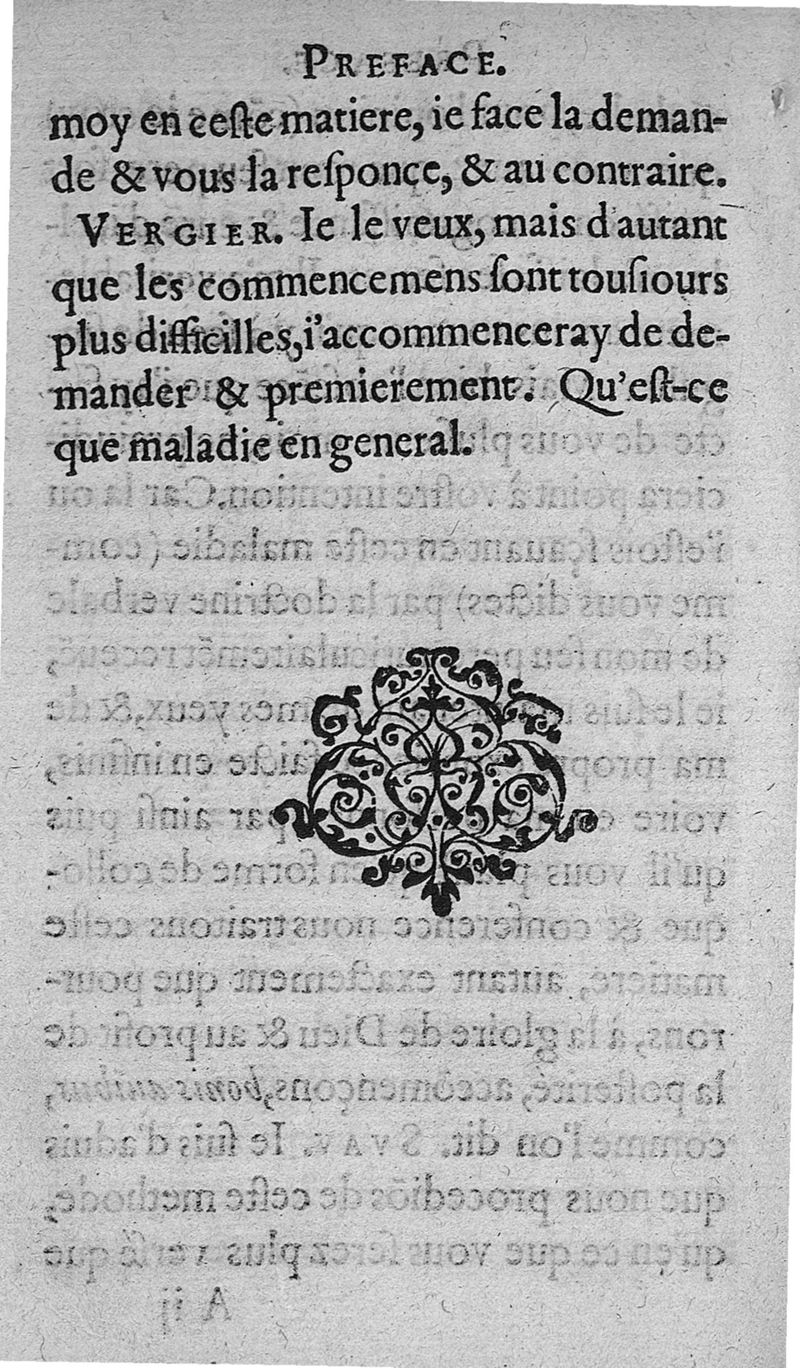 PREFACE.
moy en ceſte matiere, ie face la deman-
de & vous la reſponce, & au contraire.
VERGIER. Ie le veux, mais d'autant
que les commencemens ſont touſiours
plus difficilles, i'accommenceray de de-
mander & premierement. Qu'eſt-ce
que maladie en general.